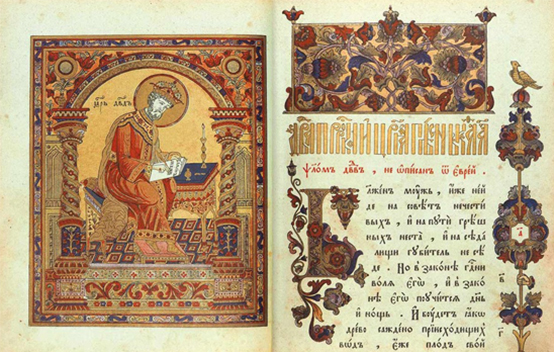 Цр҃ь Дв҃дъ
Ѱало́мъ дв҃дъ, не ѡ҆писан ѿ є҆врє́й.
Блаже́нъ мꙋ́жъ, и҆́же не и҆́
де на совѣ́тъ нечести́
выхъ, и҆ на пꙋти́ грѣ́ш
ныхъ не ста̀, и҆ на сѣда́
лищи гꙋби́тель не сѣ́
де. Но в зако́нѣ гдⷭ҇ни
во́лѧ є҆гѡ̀, и҆ в зако́
нѣ є҆гѡ̀ поꙋчи́тсѧ дн҃ь
и҆ но́щь. И҆ бꙋ́детъ ꙗ҆́кѡ
дре́во саждено̀ при и҆схо́дищих
во́дъ, є҆́же пло́дъ сво́й